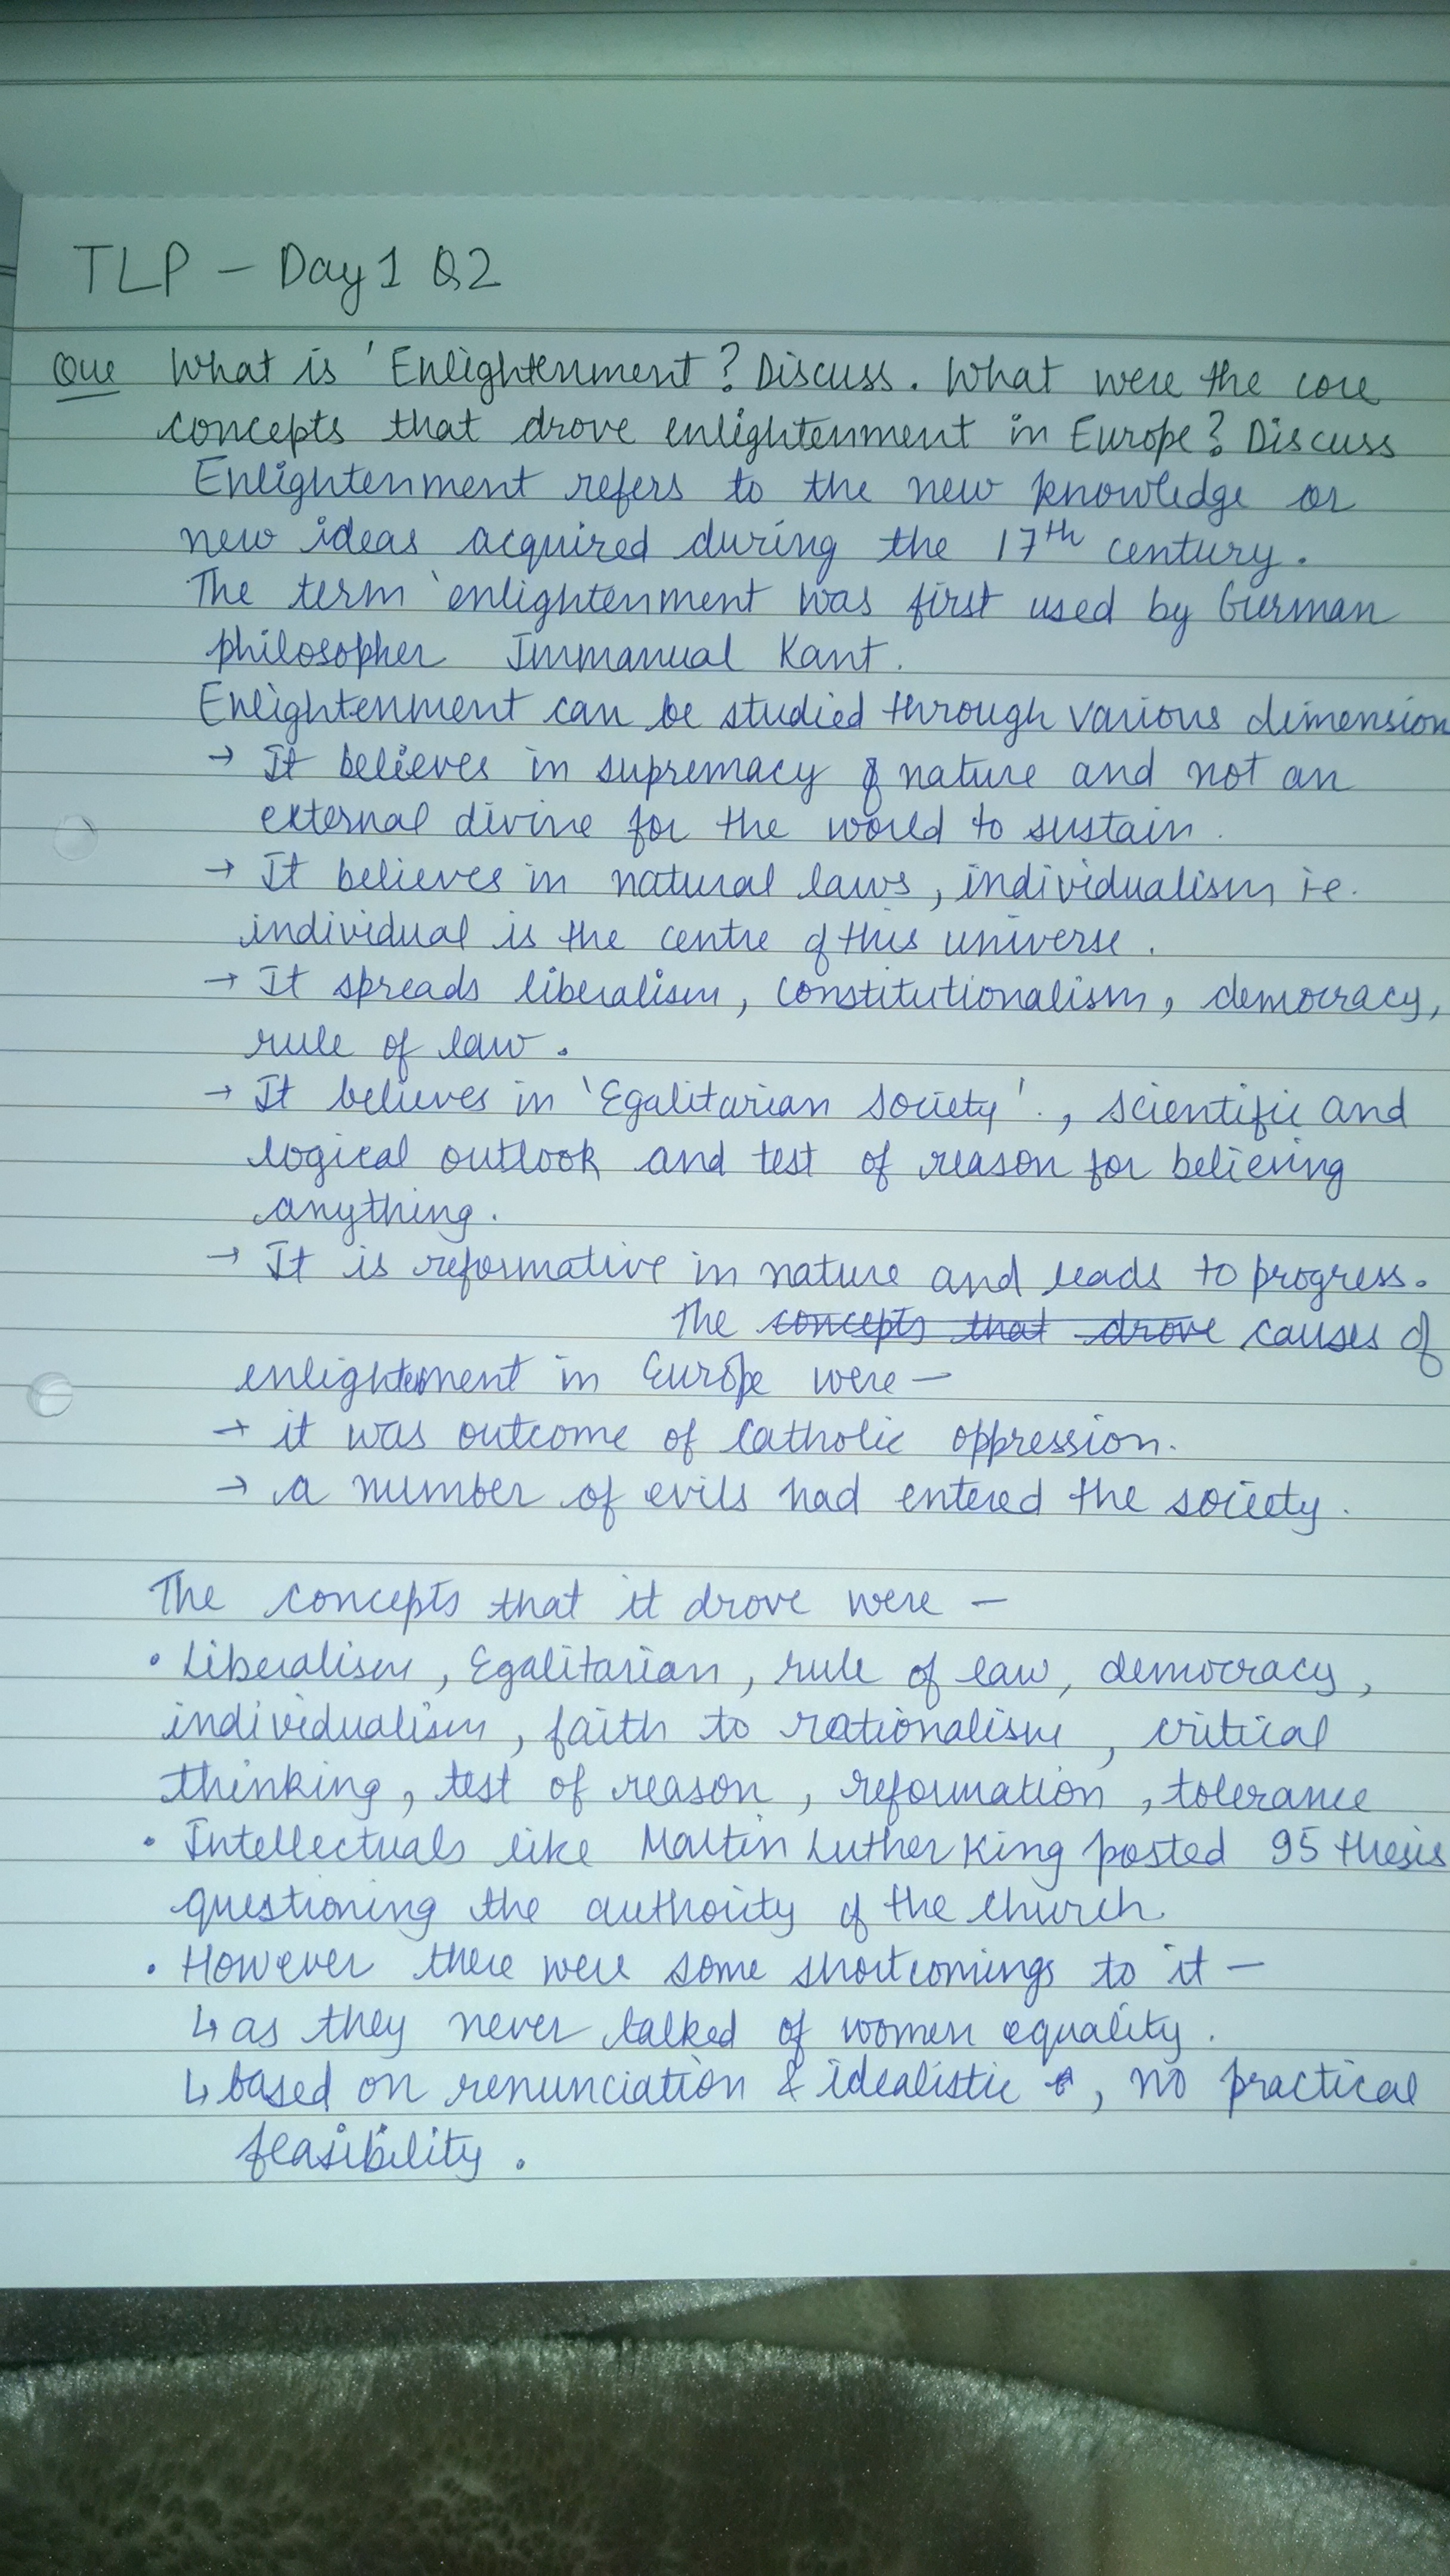 TLP – Day 1 Q2
Que What is 'Enlightenment? Discuss. What were the core
concepts that drove enlightenment in Europe? Discuss
Enlightenment refers to the new knowledge or
new ideas acquired during the 17th century.
The term 'enlightenment was first used by German
philosopher Immanual Kant.
Enlightenment can be studied through various dimension
→ It believes in supremacy of nature and not an
external divine for the world to sustain.
→ It believes in natural laws, individualism ie.
individual is the centre of this universe.
→ It spreads liberalism, constitutionalism, democracy,
rule of law.
→ It believes in 'Egalitarian Society'., scientific and
logical outlook and test of reason for believing
anything.
→ It is reformative in nature and leads to progress.
The concepts that drove causes of
enlightenment in Europe were –
→ it was outcome of Catholic oppression.
→ a number of evils had entered the society.
The concepts that it drove were –
• Liberalism, Egalitarian, rule of law, democracy,
individualism, faith to rationalism, critical
thinking, test of reason, reformation, tolerance
• Intellectuals like Martin Luther King posted 95 thesis
questioning the authority of the church
• However there were some shortcomings to it –
↳ as they never talked of women equality.
↳ based on renunciation & idealistic, no practical
feasibility.